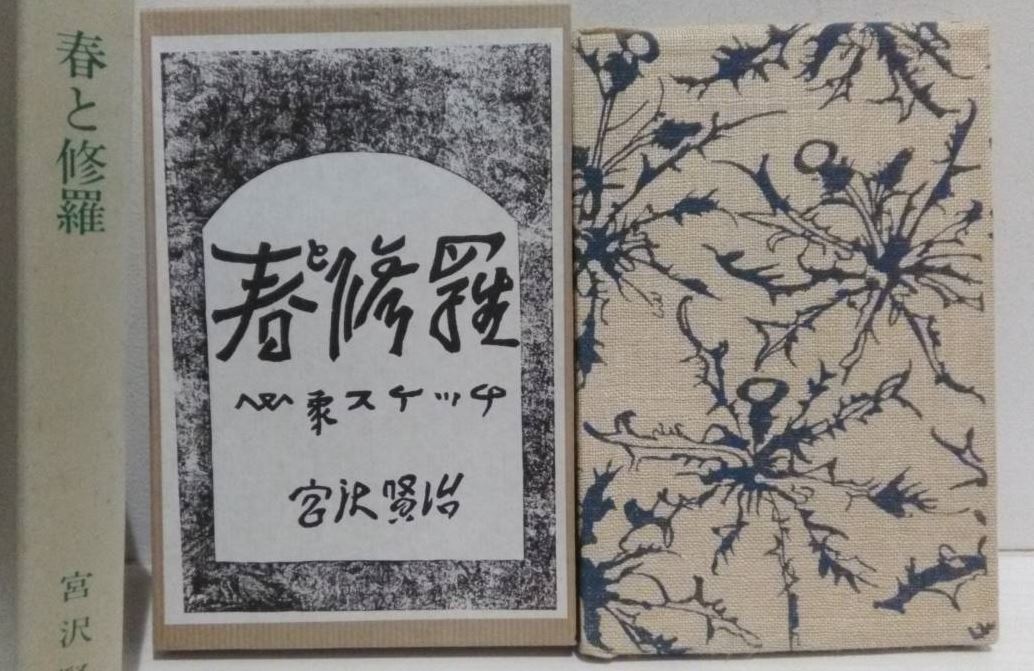 春と修羅
宮沢
春と修羅
心象スケッチ
宮沢賢治